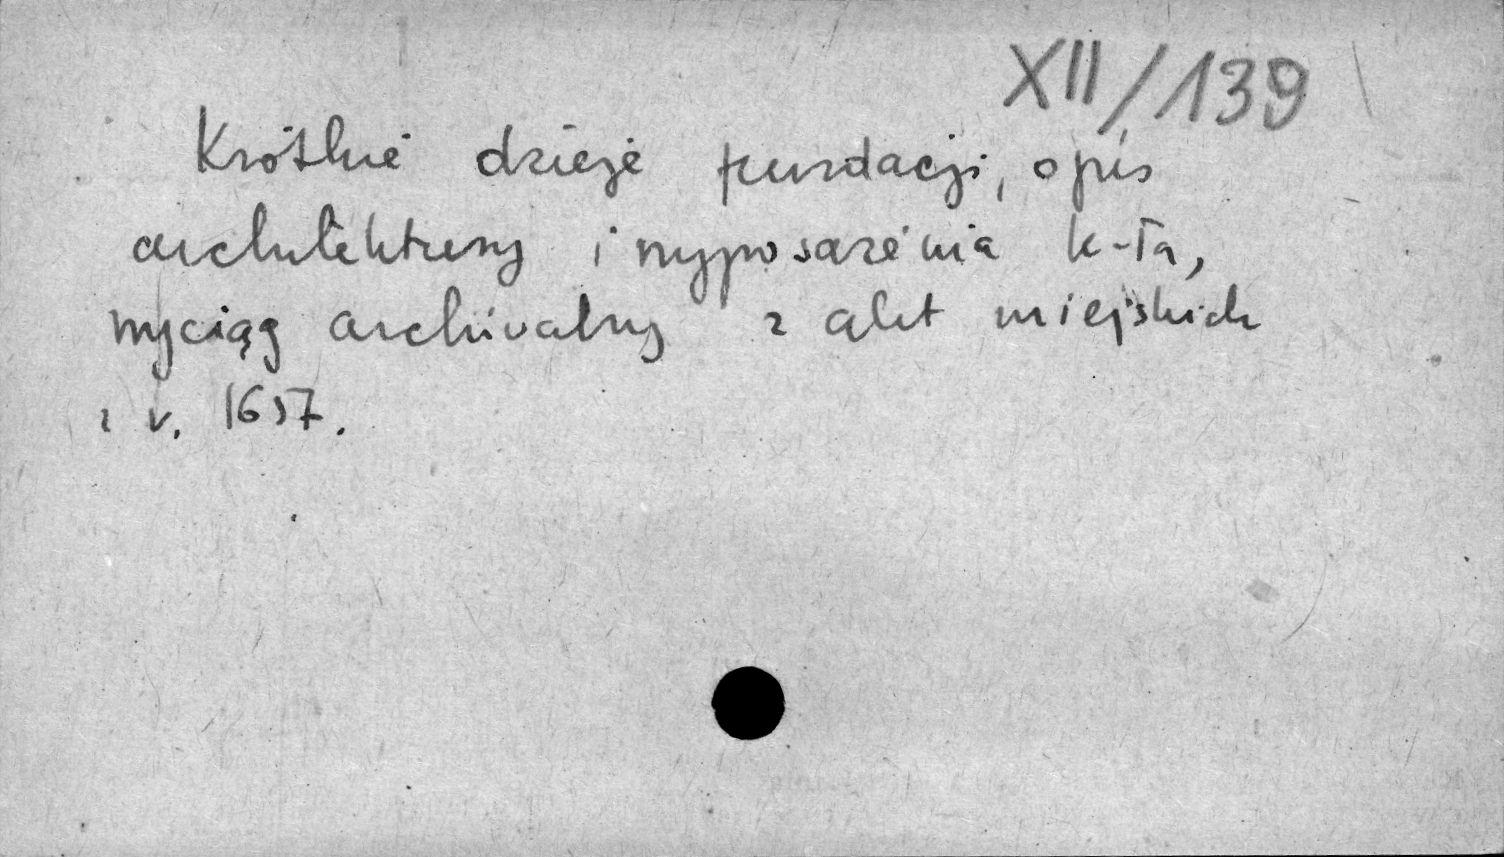 XII/139
Krótkie dzieje fundacji, opis
architektury i wyposażenia k-ła,
wyciąg archiwalny z akt miejskich
z r. 1657.